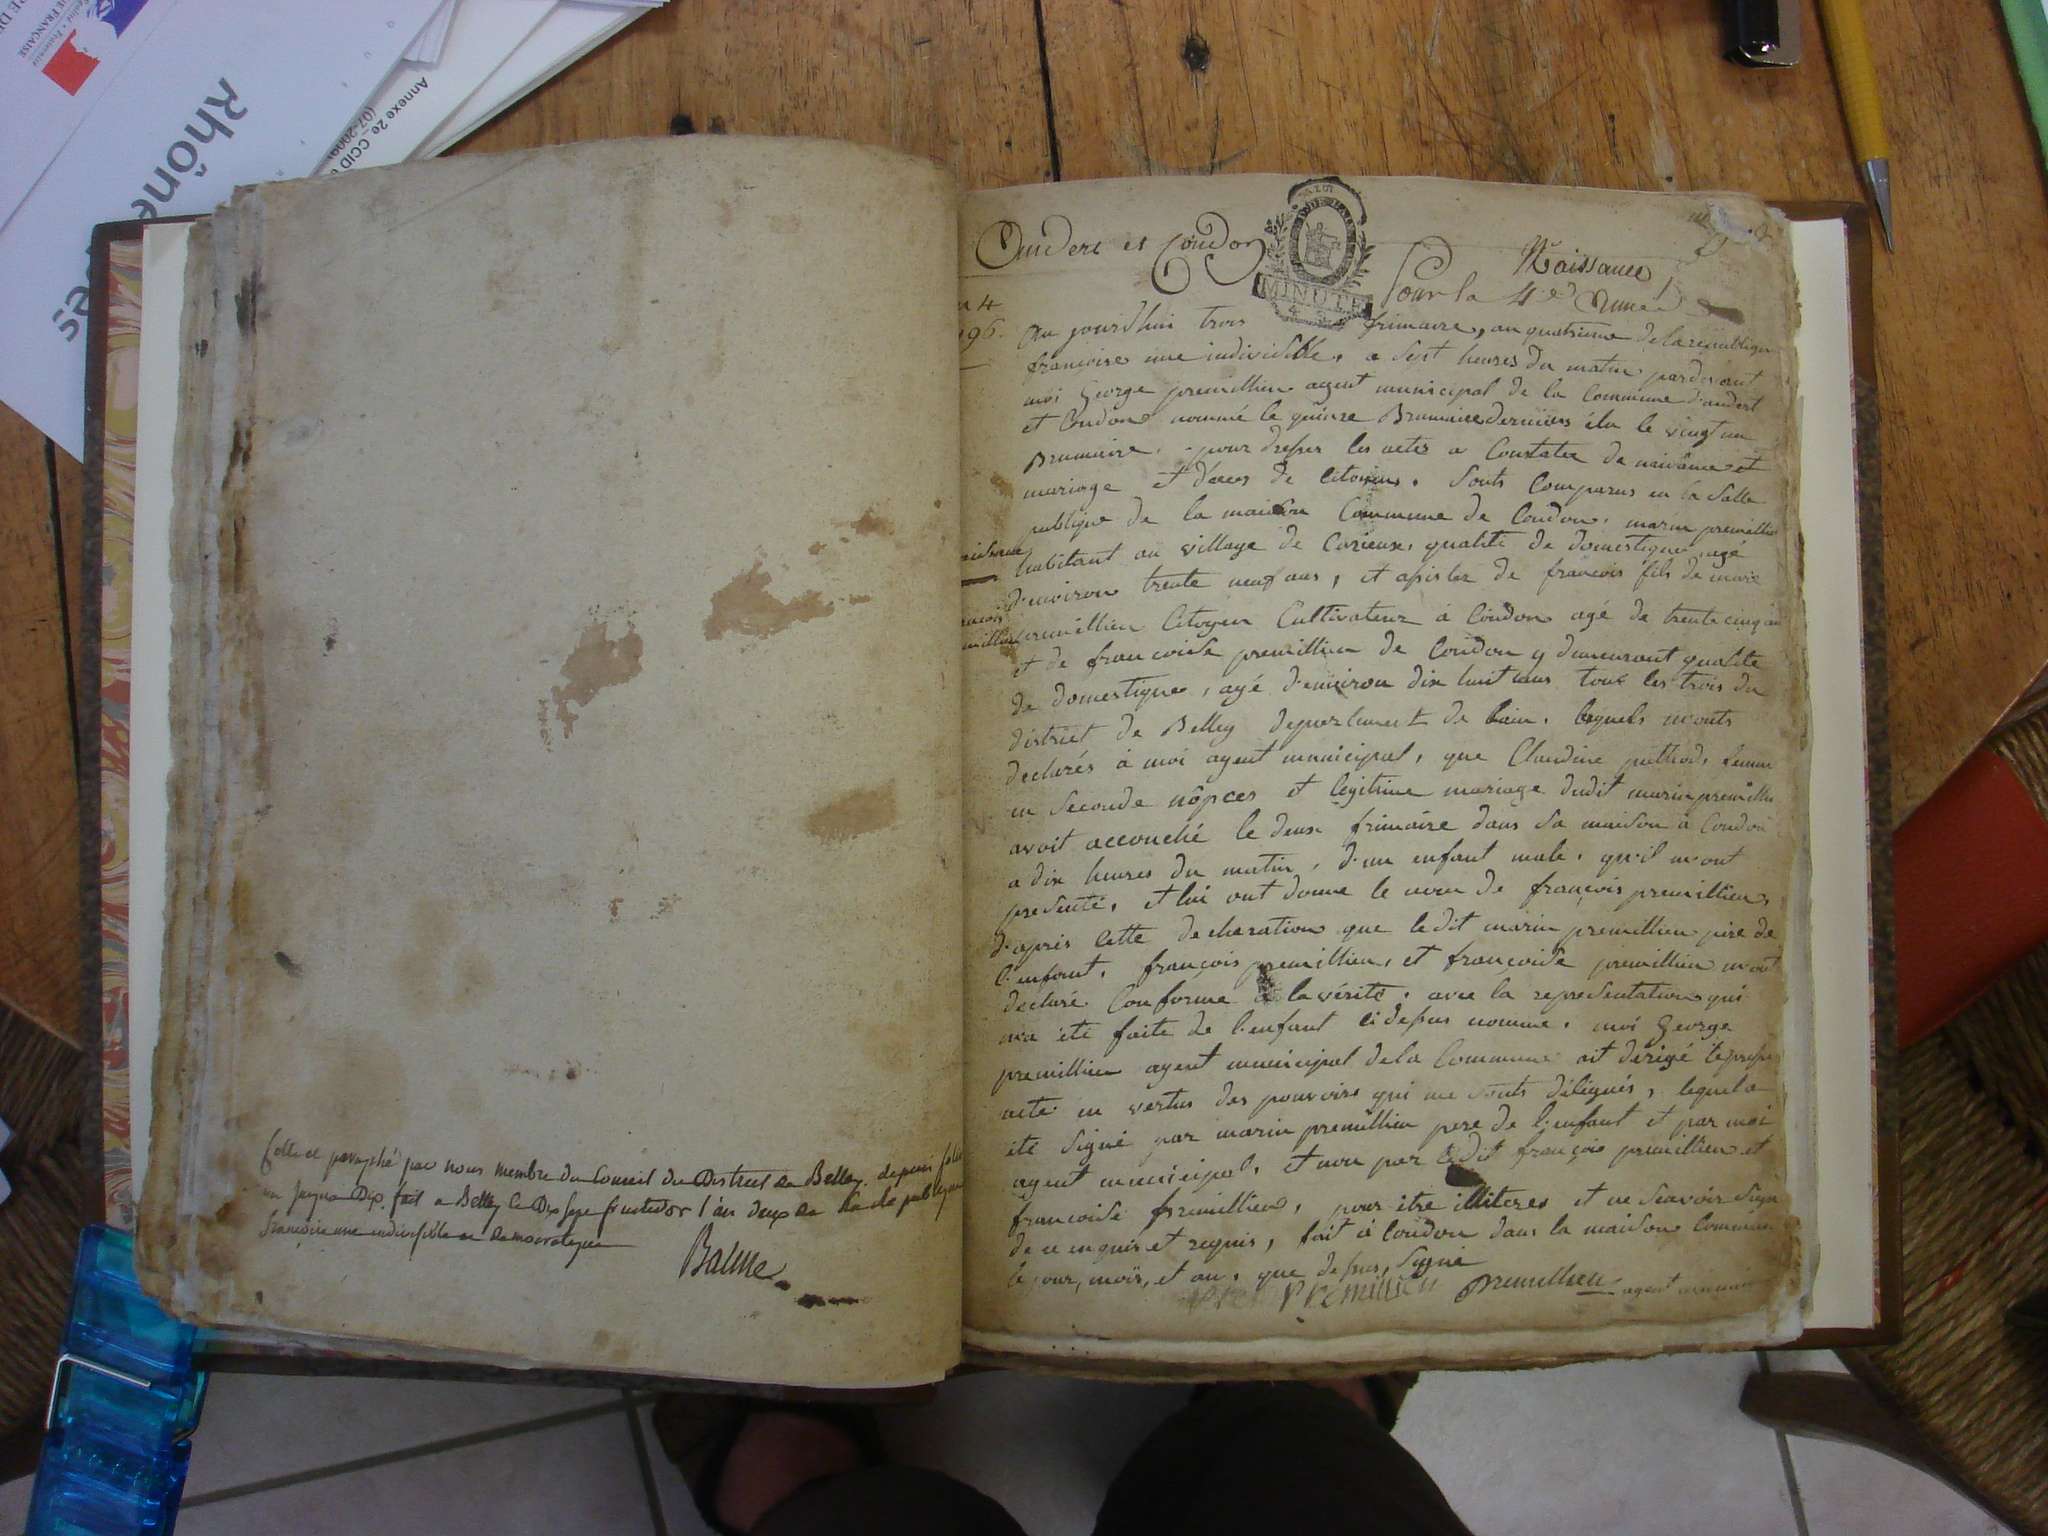 FRANÇAISE
Rhône
Annexe 2e - CCID
cotté et paraphé par nous membre du Conseil du District de Belley. depuis folio
un jusqua Dix. fait a Belley le Dix sept fructidor l'an deux de la Republique
francoise une indivisible et democratique
Balme
Andert et Condon
MINUTE
Naissance
Pour la 4e. année
Au jourd'hui trois frimaire, an quatrieme de la republique
françoise une indivisible, a sept heures du matin pardevant
moi George premillieu agent municipal de la Commune d'andert
et Condon nommé le quinze Brumaire derniers élu le vingt un
Brumaire, pour dresser les actes a Constater de naissance et
mariage et décès de Citoyens. Sonts Comparus en la Salle
publique de la maison Commune de Condon, marin premillieu
habitant au village de Curieux, qualité de domestique agé
d'environ trente neuf ans, et assistez de françois fils de marie
premillieu Citoyen Cultivateur à Condon agé de trente cinq an
et de francoise premillieu de Condon y demeurant qualité
de domestique, agé d'environ dix huit ans tous les trois du
district de Belley departement de lain. lequels m'onts
declarés à moi agent municipal, que Claudine puthod, femme
en Seconde nôpces et légitime mariage dudit marin premillieu
avoit accouché le deux frimaire dans sa maison à Condon
a dix heures du matin, d'un enfant male, qu'il m'ont
presenté, et lui ont donné le nom de françois premillieu,
d'après Cette declaration que ledit marin premillieu père de
l'enfant, françois premillieu, et françoise premillieu m'ont
declaré Conforme a la vérité, avec la representation qui
m'a été faite de l'enfant ci dessus nommé, moi George
premillieu agent municipal de la Commune ait dérigé le present
acte en vertus des pouvoirs qui me Sonts délégués, lequel a
été Signé par marin premillieu pere de l'enfant et par moi
agent municipal, et non par ledit françois premillieu et
francoise premillieu, pour être illiteres et ne Scavoir Signé
de ce enquis et requis, fait à Condon dans la maison Commune
le jour, mois, et an, que dessus, Signé
Premillieu Premillieu agent municipal